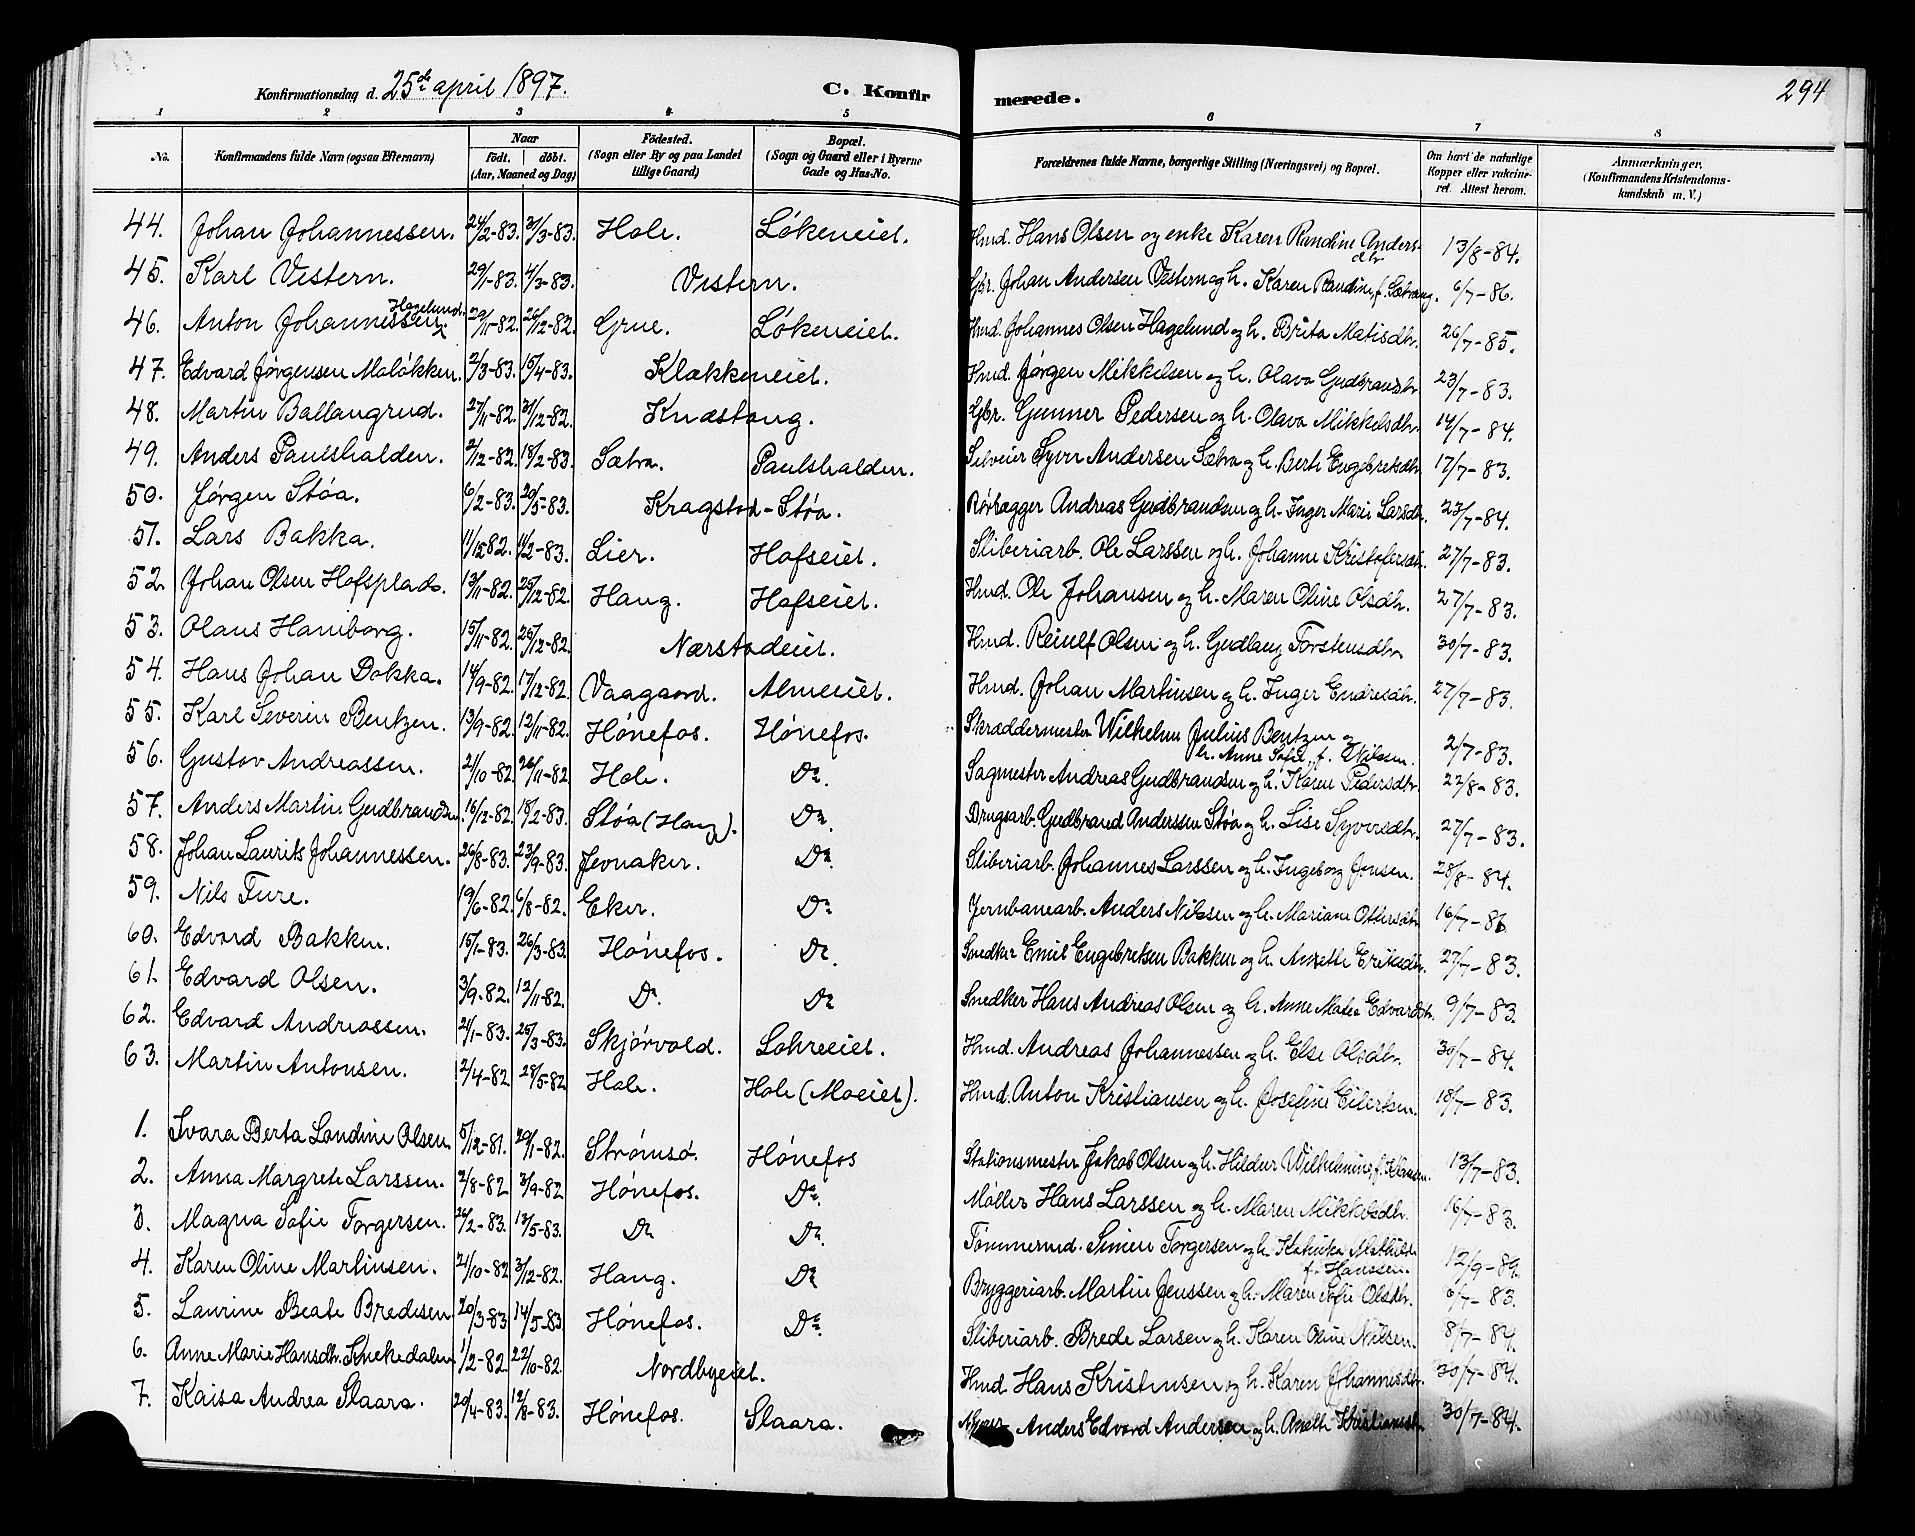 Konfirmationsdag d. 25de april 1897. C. Konfirmerede. 294
1 2 3 4 5 6 7 8
No. Konfirmandens fulde Navn (ogsaa Efternavn) Naar født. døbt. (Aar, Maaned og Dag) Fødested. (Sogn eller By og paa Landet tillige Gaard) Bopæl. (Sogn og Gaard eller i Byerne Gade og Hus-No. Forældrenes fulde Navne, borgerlige Stilling (Næringsvei) og Bopæl. Om havt de naturlige Kopper eller vakcineret. Attest herom. Anmærkninger. (Konfirmandens Kristendomskundskab m. V.)
44. Johan Johannessen. 24/2-83. 31/3-83. Hole. Løkeneiet. Hmd. Hans Olsen og enke Karen Randine Andersdtr 13/8-84.
45. Karl Vestern. 29/1-83. 4/3-83. Vestern. Gbr. Johan Andersen Vestern og h. Karen Randine, f. Sætrang. 6/7-86.
46. Anton Johannessen Hagelund. 29/11-82. 26/12-82. Grue. Løkeneiet. Hmd. Johannes Olsen Hagelund og h. Brita Matisdtr. 26/7-85.
47. Edvard Jørgensen Maløkken. 2/3-83. 15/4-83. Klækkeneiet. Hmd. Jørgen Mikkelsen og h. Olava Gudbrandsdtr 23/7-83.
48. Martin Ballangrud. 27/11-82. 31/12-82. Knæstang. Gbr. Gunner Pedersen og h. Olava Mikkelsdtr. 14/7-84.
49. Anders Paulshalden. 2/12-82. 18/2-83. Sætra. Paulshalden. Selveier Syver Andersen Sætra og h. Berte Engebretsdtr. 17/7-83.
50. Jørgen Støa. 6/2-83. 20/5-83. Kragstad-Støa. Andreas Gudbrandsen og h. Inger Marie Larsdtr. 23/7-84.
51. Lars Bakka. 11/12 82. 11/2-83. Lier. Hofseiet. Sliberiarb. Ole Larssen og h. Johanne Kristofersdtr. 27/7-83.
52. Johan Olsen Hofsplads. 13/11-82. 25/12-82. Haug. Hofseiet. Hmd. Ole Johansen og h. Maren Oline Olsdtr. 27/7-83.
53. Olaus Hamborg. 15/11-82. 25/12-82. Nærstadeiet. Hmd. Reinlf Olsen og h. Gudlaug Torstensdtr 30/7-83.
54. Hans Johan Dokka. 14/9-82. 17/12-82. Vaagaard. Almeiet. Hmd. Johan Martinsen og h. Inger Endresdtr. 27/7-83.
55. Karl Severin Bentzen. 13/9-82. 12/11-82. Hønefos. Hønefos. Skræddermester Wilhelm Julius Bentzen og h. Anne Sofie, f. Nilsen. 2/7-83.
56. Gustav Andreassen. 2/10-82. 26/11-82 Hole. Do. Sagmester Andreas Gudbrandsen og h. Karen Pedersdtr. 22/8-83.
57. Anders Martin Gudbrandsen. 16/12-82. 18/2-83. Støa (Haug). Do. Brugsarb. Gudbrand Anderssen Støa og h. Lise Syversdtr. 27/7-83.
58. Johan Laurits Johannessen. 26/8-83. 23/9-83. Jevnaker. Do. Sliberiarb. Johannes Larssen og h. Ingeborg Jonsen. 28/8-84.
59. Nils Ture. 19/6-82. 6/8-82. Eker. Do. Jernbanearb. Anders Nilssen og h. Mariane Ottersdtr. 16/7-86
60. Edvard Bakken. 15/1-83. 26/3-83. Hønefos. Do. Snedker Emil Engebretsen Bakken og h. Anette Eriksdtr. 27/7-83.
61. Edvard Olsen. 3/9-82. 12/11-82. Do. Do. Snedker Hans Andreas Olsen og h. Anne Matea Edvardsdtr. 9/7-83.
62. Edvard Andreassen. 24/1-83. 25/3-83. Skjørvold. Lohreeiet. Hmd. Andreas Johannessen og h. Else Olsdtr. 30/7-84.
63. Martin Antonsen. 2/4-82 28/5-82 Hole. Hole (Moeiet). Hmd. Anton Kristiansen og h. Josefine Eilertsen. 18/7-83.
1. Svara Berta Landine Olsen. 5/12-81. 29/1-82. Strømsø. Hønefos Stationsmester Jakob Olsen og h. Hildur Wilhelmine, f. 13/7-83.
2. Anna Margrete Larssen. 2/8-82 3/9-82 Hønefos. Do. Møller Hans Larssen og h. Maren Mikkelsdtr. 16/7-83.
3. Magna Sofie Torgersen. 26/2-83. 13/5-83. Do Do. Tømmermd. Simen Torgersen og h. Katinka Mathilde f. Hanssen. 12/9-89.
4. Karen Oline Martinsen. 21/10-82 3/12-82. Haug. Do Bryggeriarb. Martin Jenssen og h. Maren Sofie Olsdtr. 6/7-83.
5. Laurine Beate Bredesen 20/3-83 14/5-83 Hønefos. Do. Sliberiarb. Brede Larsen og h. Karen Oline Nilsen. 8/7-84.
6. Anne Marie Hansdtr. Knekedalen 1/2-82 22/10-82. Nordbyeiet. Hmd. Hans Kristensen og h. Karen Johannesdtr. 30/7-84.
7. Kaisa Andrea Slaara. 20/4-83. 12/8-83. Hønefos. Slaara. Anders Edvard Andersen og h. Anette Kristiansdtr. 30/7-84.